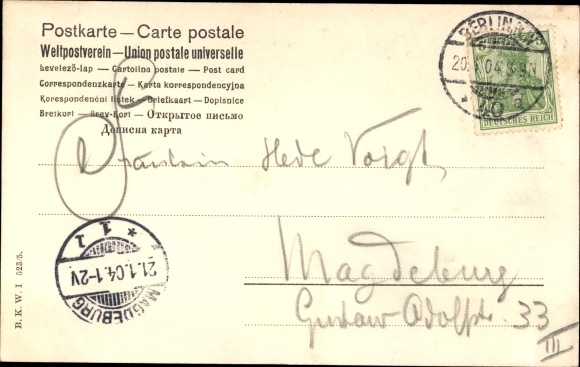 Postkarte — Carte postale
Weltpostverein — Union postale universelle
Levelező-lap — Cartolina postale — Post card
Correspondenzkarte — Karta korrespondencyjna
Korespondenční lístek — Briefkaart — Dopisnice
Brevkort — Brev-Kort — Открытое письмо
Дописна карта
BERLIN
20. 1. 04
DEUTSCHES REICH
Fräulein Hede Voigt,
Magdeburg
Gustav Adolfstr. 33
III
1 1
21.1.04.1-2V
MAGDEBURG
B. K. W. I 523/5.